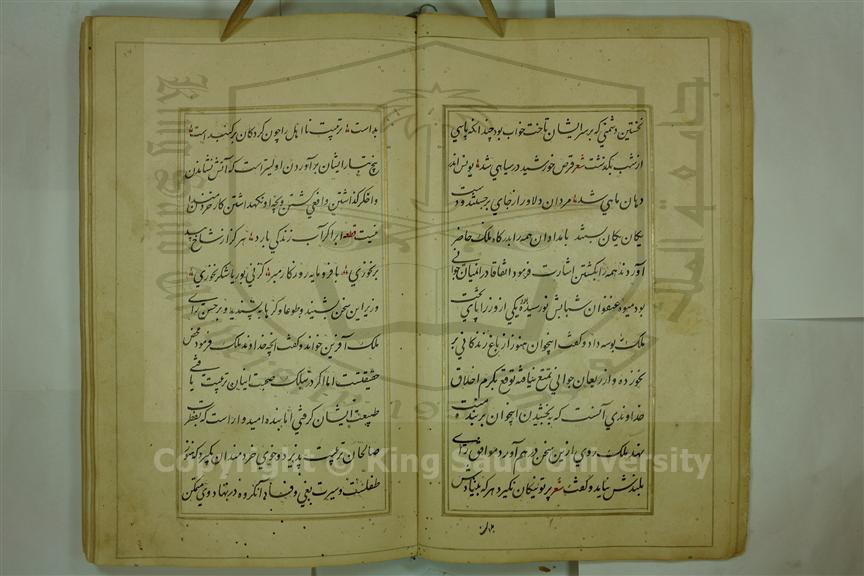 نخستین دشمنی که بر سر ایشان تاخت خواب بود چندانکه پاسی
از شب بگذشت شعر قرص خورشید در سیاهی شد یونس اندر
دهان ماهی شد مردان دلاور از جای برجستند و دست
یکان یکان بستند بامدادان همه را بدرگاه ملک حاضر
آوردند همه را بکشتن اشارت فرمود اتفاقا در آن میان جوانی
بود میوه عنفوان شبابش نو رسیده یکی از وزرا پای تخت
ملک بوسه داد و گفت این جوان هنوز از باغ زندگانی بر
نخورده و از ریعان جوانی تمتع نیافته توقع بکرم اخلاق
خداوندی آنست که ببخشیدن این جوان بر بنده منت
نهند ملک روی ازین سخن درهم آورد و موافق رای
بلندش نیاید و گفت شعر پرتو نیکان نگیرد هر که بنیادش
بداست تربیت نااهل را چون گردکان بر گنبد است
بیخ تبار ایشان بر آوردن اولیتر است که آتش نشاندن
و اخگر گذاشتن و افعی کشتن و بچه او نگهداشتن کار خردمندان
نیست قطعه ابر اگر آب زندگی بارد هرگز از شاخ بید
بر نخوری با فرومایه روزگار مبر کز نی بوریا شکر نخوری
وزیر این سخن بشنید و طوعا و کرها پسندید و بر حسن رای
ملک آفرین خواند و گفت انچه خداوند ملک فرمود محض
حقیقتست اما اگر در سلک صحبت اینان تربیت یافتی
طبیعت ایشان گرفتی اما بنده امیدوار است که بعشرت
صالحان تربیت پذیرد و خوی خردمندان گیرد که هنوز
طفلست و سیرت بغی و فساد آنگروه در نهاد وی متمکن
Copyright © King Saud University